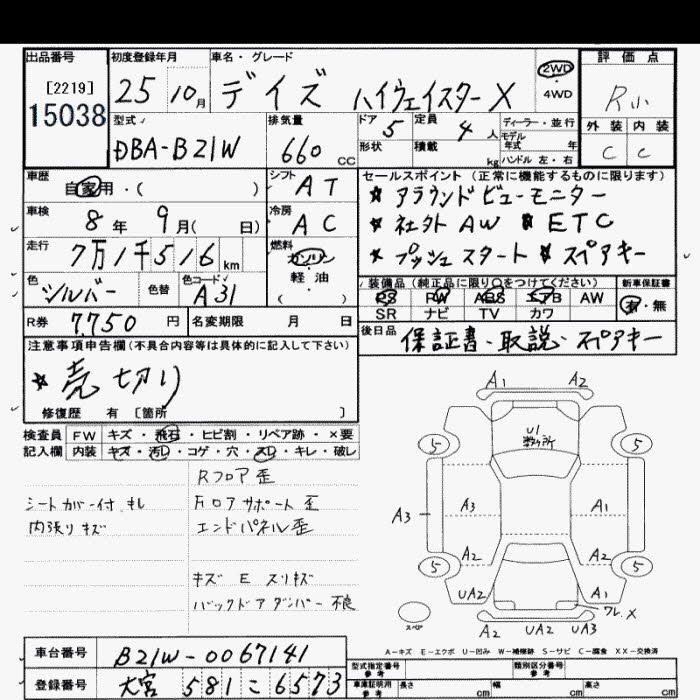 出品番号 初度登録年月 車名・グレード 2WD 評価点
[2219] 25 10月 デイズ ハイウェイスターX ・4WD R小
15038 型式 排気量 ドア 5 定員 4人 ディーラー・並行 外装 内装
DBA-B21W 660cc 形状 積載 kg モデル年式 年式 ハンドル 左・右 C C
車歴 自家用・( ) シフト AT セールスポイント (正常に機能するものに限ります)
車検 8年 9月( 日) 冷房 AC ★アラウンドビューモニター
走行 7万1千516km 燃料 ガソリン ★社外AW ★ETC
軽油 ( ) ★プッシュスタート ★スペアキー
色 シルバー 色替 色コード A31 装備品 (純正品に限り○をつけてください) 新車保証書
PS PW ABS エアB AW 有・無
SR ナビ TV カワ
R券 7,750円 名変期限 月 日 後日品 保証書・取説・スペアキー
注意事項申告欄(不具合内容等は具体的に記入して下さい)
★売切り
修復歴 有 〔箇所 〕
検査員 FW キズ・飛石・ヒビ割・リペア跡・×要
記入欄 内装 キズ・汚レ・コゲ・穴・スレ・キレ・破レ
Rフロア歪
シートカバー付 キレ フロアサポート歪
内張りキズ エンドパネル歪
キズ E スリキズ
バックドアダンパー不良
A1 A2
U1
数ヶ所
5 5
A3 A3 A1
A2 A2
5 5
UA2 A1
ワレ.X
スペア A2 UA2 UA3
A-キズ E-エクボ U-凹み W-補修跡 S-サビ C-腐食 XX-交換済
車台番号 B21W-0067141 型式指定番号 参考 類別区分番号 参考
登録番号 大宮 581 こ 6573 車庫証明用 参考 長さ cm 幅 cm 高さ cm